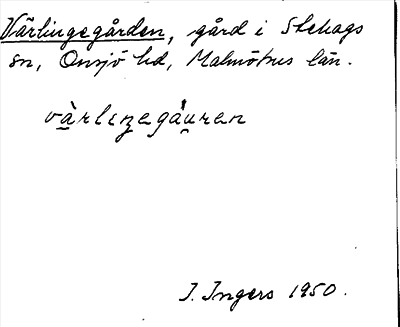 Värlingegården, gård i Stehags
sn, Onsjö hd, Malmöhus län.
và̱rlıŋega̍u̱ren
I. Ingers 1950.